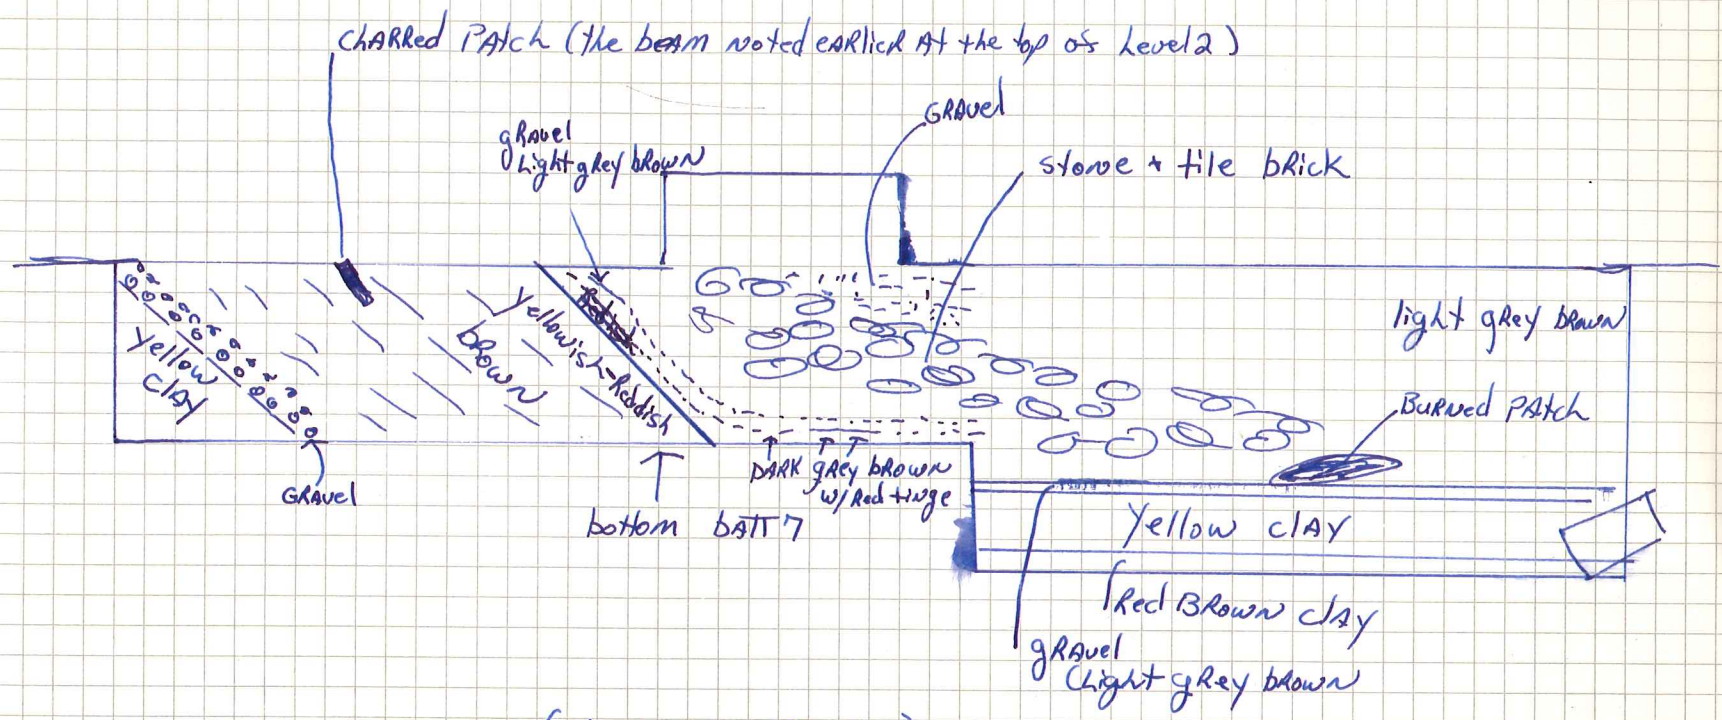 chARRed PAtch (the beAm noted eARlieR At the top of Level 2)
GRAvel
gRavel
Light gRey bRowN
stone + tile bRick
light gRey bRowN
Yellow
clAy
bRowN
Yellowish-Reddish
BuRNed PAtch
DARK gRey bRowN
w/ Red tinge
GRAvel
bottom bATT 7
Yellow clAY
Red BRowN clAy
gRAvel
Light gRey bRowN